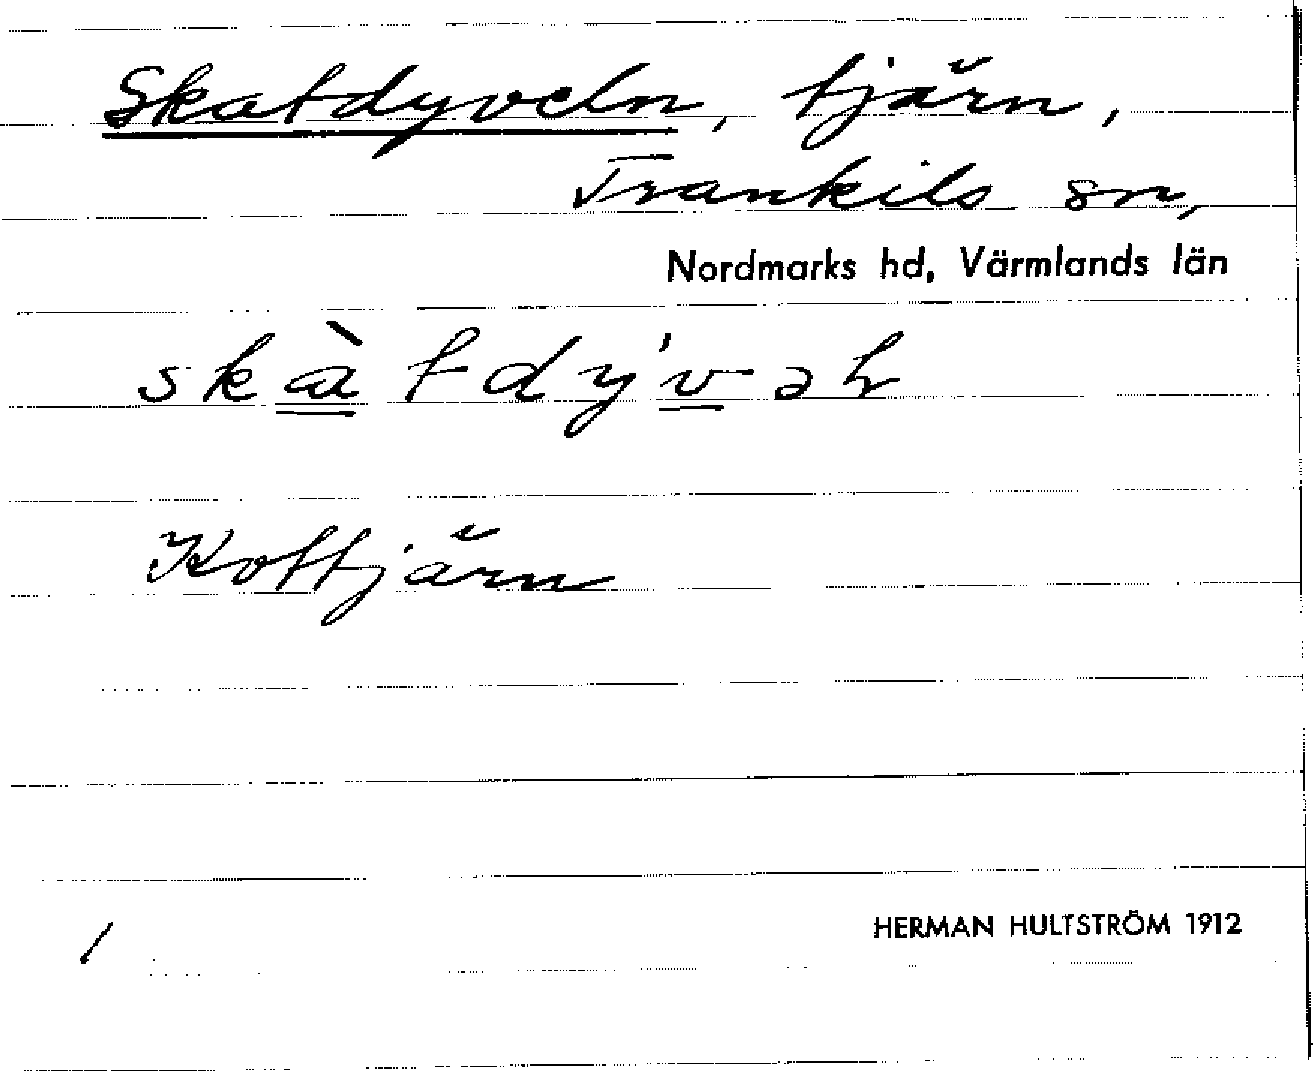 Skatdyveln, tjärn,
Trankils sn,
Nordmarks hd, Värmlands län
skàtdy'vəln
Kottjärn
HERMAN HULTSTRÖM 1912
/